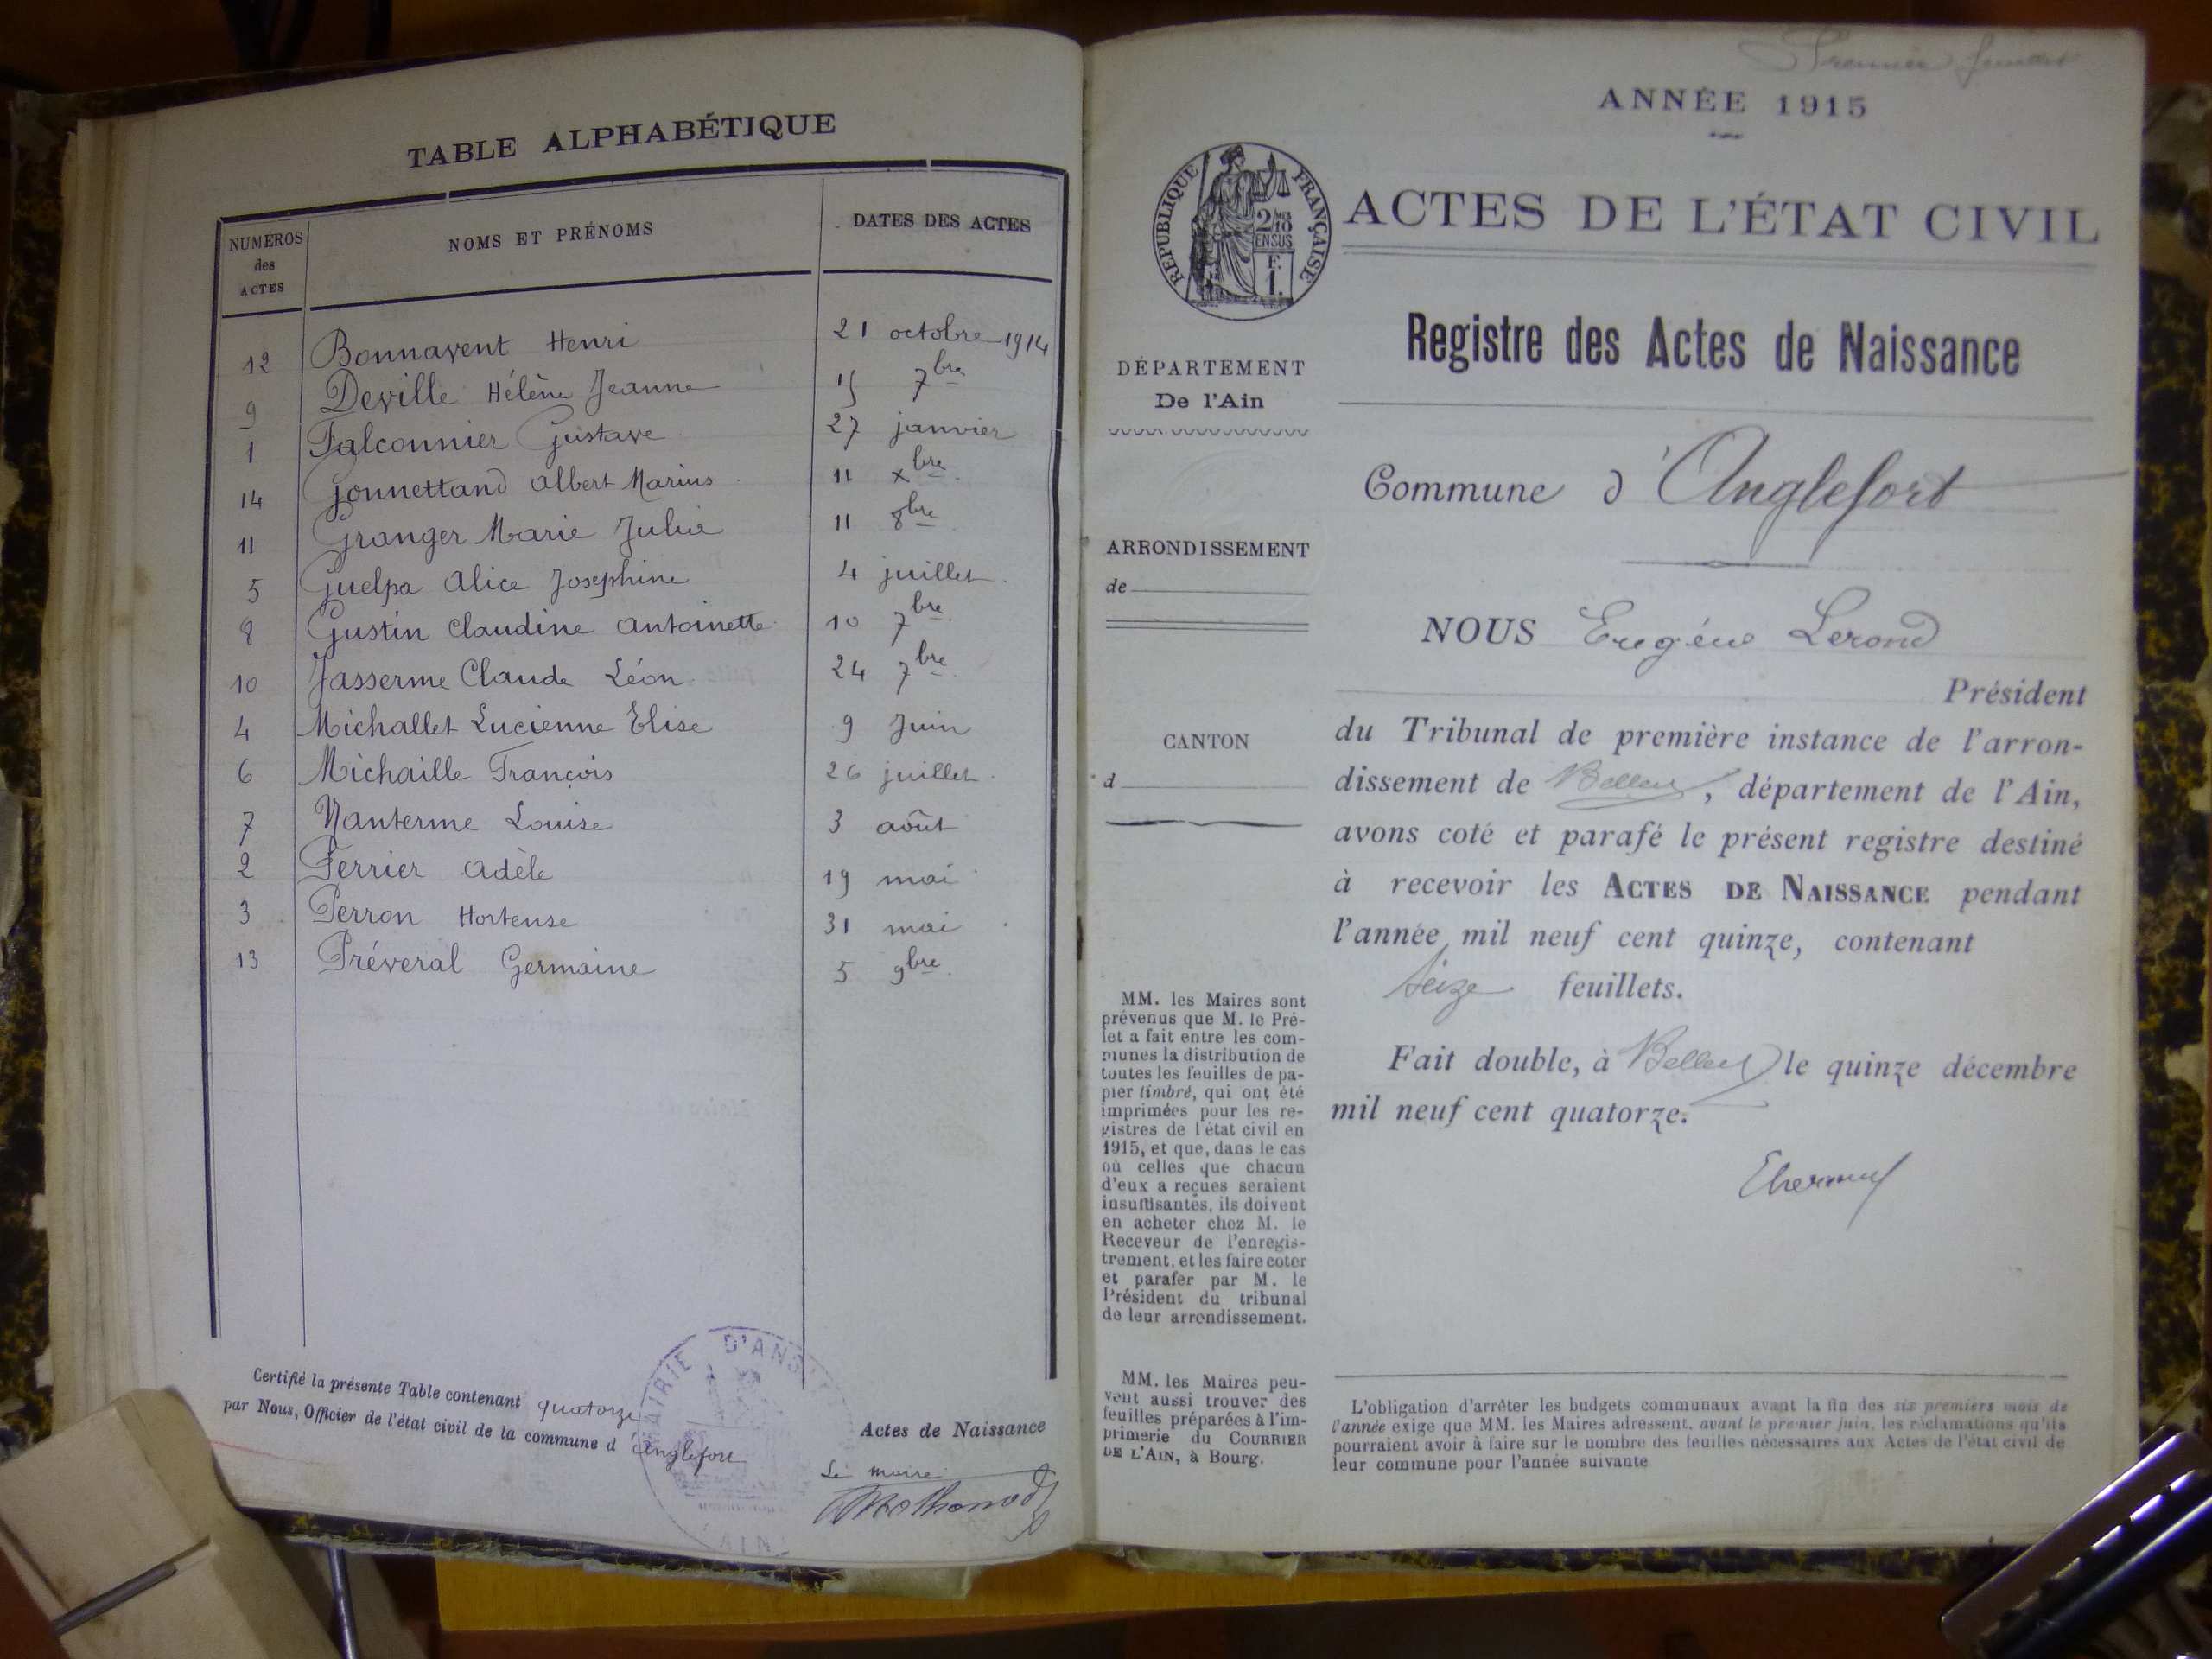 TABLE ALPHABÉTIQUE
NUMÉROS des ACTES | NOMS ET PRÉNOMS | DATES DES ACTES
12 Bonnavent Henri 21 octobre 1914
9 Deville Hélène Jeanne 15 7bre
1 Falconnier Gustave 27 janvier
14 Gonnettand Albert Marius 11 xbre
11 Granger Marie Julia 11 8bre
5 Guelpa Alice Josephine 4 juillet
8 Gustin Claudine Antoinette 10 7bre
10 Jasserme Claude Léon 24 7bre
4 Michallet Lucienne Elise 9 Juin
6 Michaille François 26 juillet
7 Nanterme Louise 3 août
2 Perrier Adèle 19 mai
3 Perron Hortense 31 mai
13 Préveral Germaine 5 9bre
Certifié la présente Table contenant quatorze Actes de Naissance
par Nous, Officier de l'état civil de la commune d'Anglefort
Le maire
MAIRIE D'ANGL
AIN
ANNÉE 1915
RÉPUBLIQUE FRANÇAISE
2/10
EN SUS
F.
1.
ACTES DE L'ÉTAT CIVIL
Registre des Actes de Naissance
DÉPARTEMENT
De l'Ain
Commune d'Anglefort
ARRONDISSEMENT
de
CANTON
d
NOUS Eugène Lerond
Président
du Tribunal de première instance de l'arron-
dissement de Belley, département de l'Ain,
avons coté et parafé le présent registre destiné
à recevoir les ACTES DE NAISSANCE pendant
l'année mil neuf cent quinze, contenant
seize feuillets.
Fait double, à Belley le quinze décembre
mil neuf cent quatorze.
MM. les Maires sont
prévenus que M. le Pré-
fet a fait entre les com-
munes la distribution de
toutes les feuilles de pa-
pier timbré, qui ont été
imprimées pour les re-
gistres de l'état civil en
1915, et que, dans le cas
où celles que chacun
d'eux a reçues seraient
insuffisantes, ils doivent
en acheter chez M. le
Receveur de l'enregis-
trement, et les faire coter
et parafer par M. le
Président du tribunal
de leur arrondissement.
MM. les Maires peu-
vent aussi trouver des
feuilles préparées à l'im-
primerie du COURRIER
DE L'AIN, à Bourg.
L'obligation d'arrêter les budgets communaux avant la fin des six premiers mois de
l'année exige que MM. les Maires adressent, avant le premier juin, les réclamations qu'ils
pourraient avoir à faire sur le nombre des feuilles nécessaires aux Actes de l'état civil de
leur commune pour l'année suivante